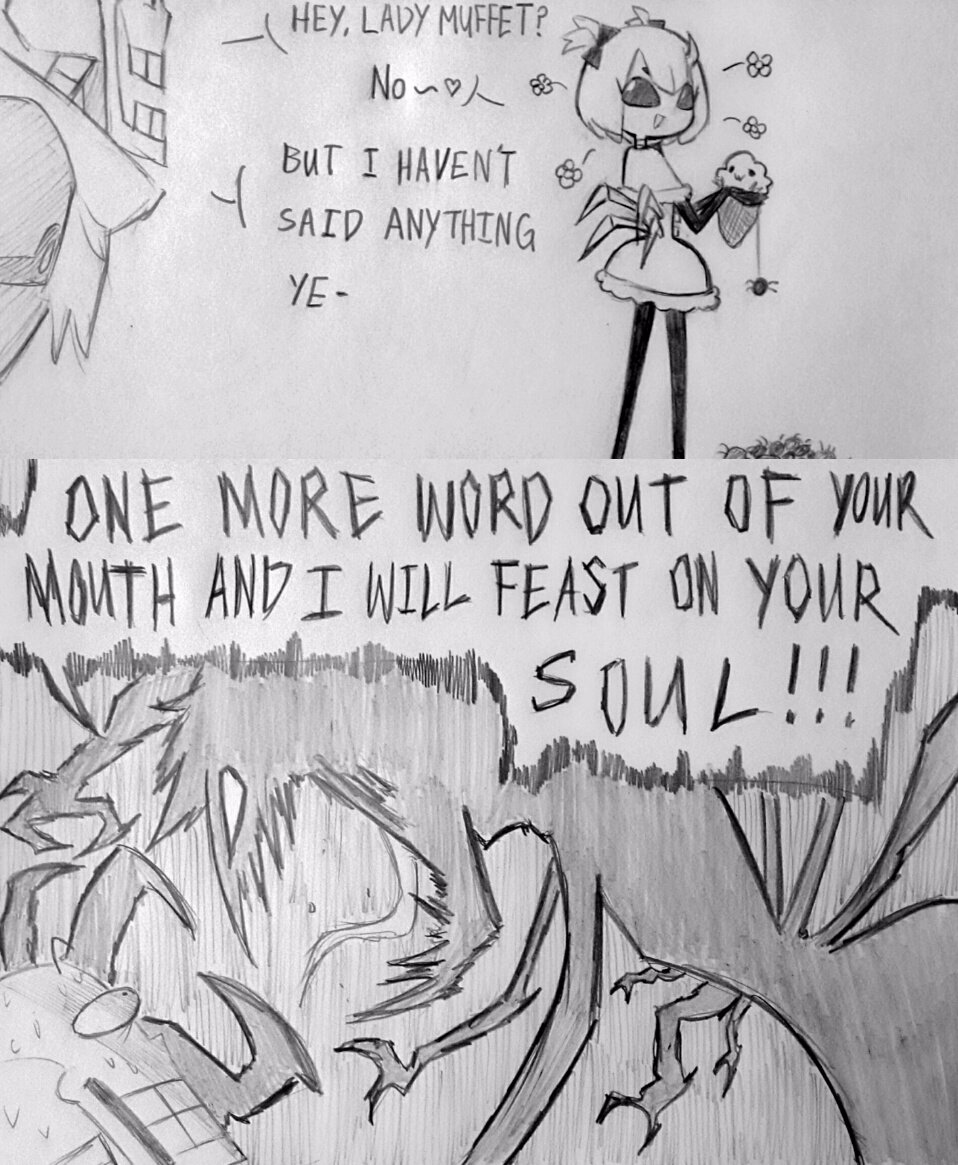 HEY, LADY MUFFET?
NO~♡
BUT I HAVEN'T
SAID ANYTHING
YE-
ONE MORE WORD OUT OF YOUR
MOUTH AND I WILL FEAST ON YOUR
SOUL!!!